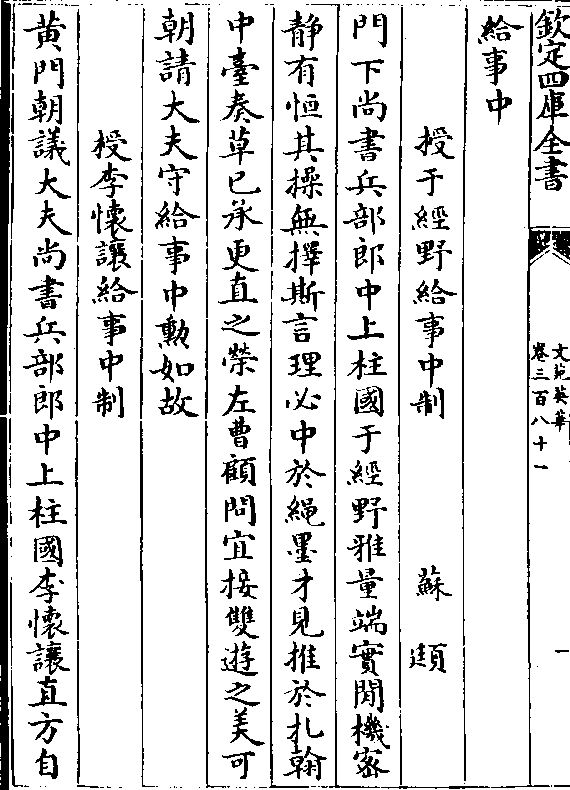 欽定四庫全書
文苑英華
卷三百八十一
一
給事中
授于經野給事中制 蘇頲
門下尚書兵部郎中上柱國于經野雅量端實閑機密
静有恒其操無擇斯言理必中於䋲墨才見推於札翰
中臺奏草已承更直之榮左曹顧問宜接雙遊之美可
朝請大夫守給事中勲如故
授李懷讓給事中制
黄門朝議大夫尚書兵部郎中上柱國李懷讓直方自